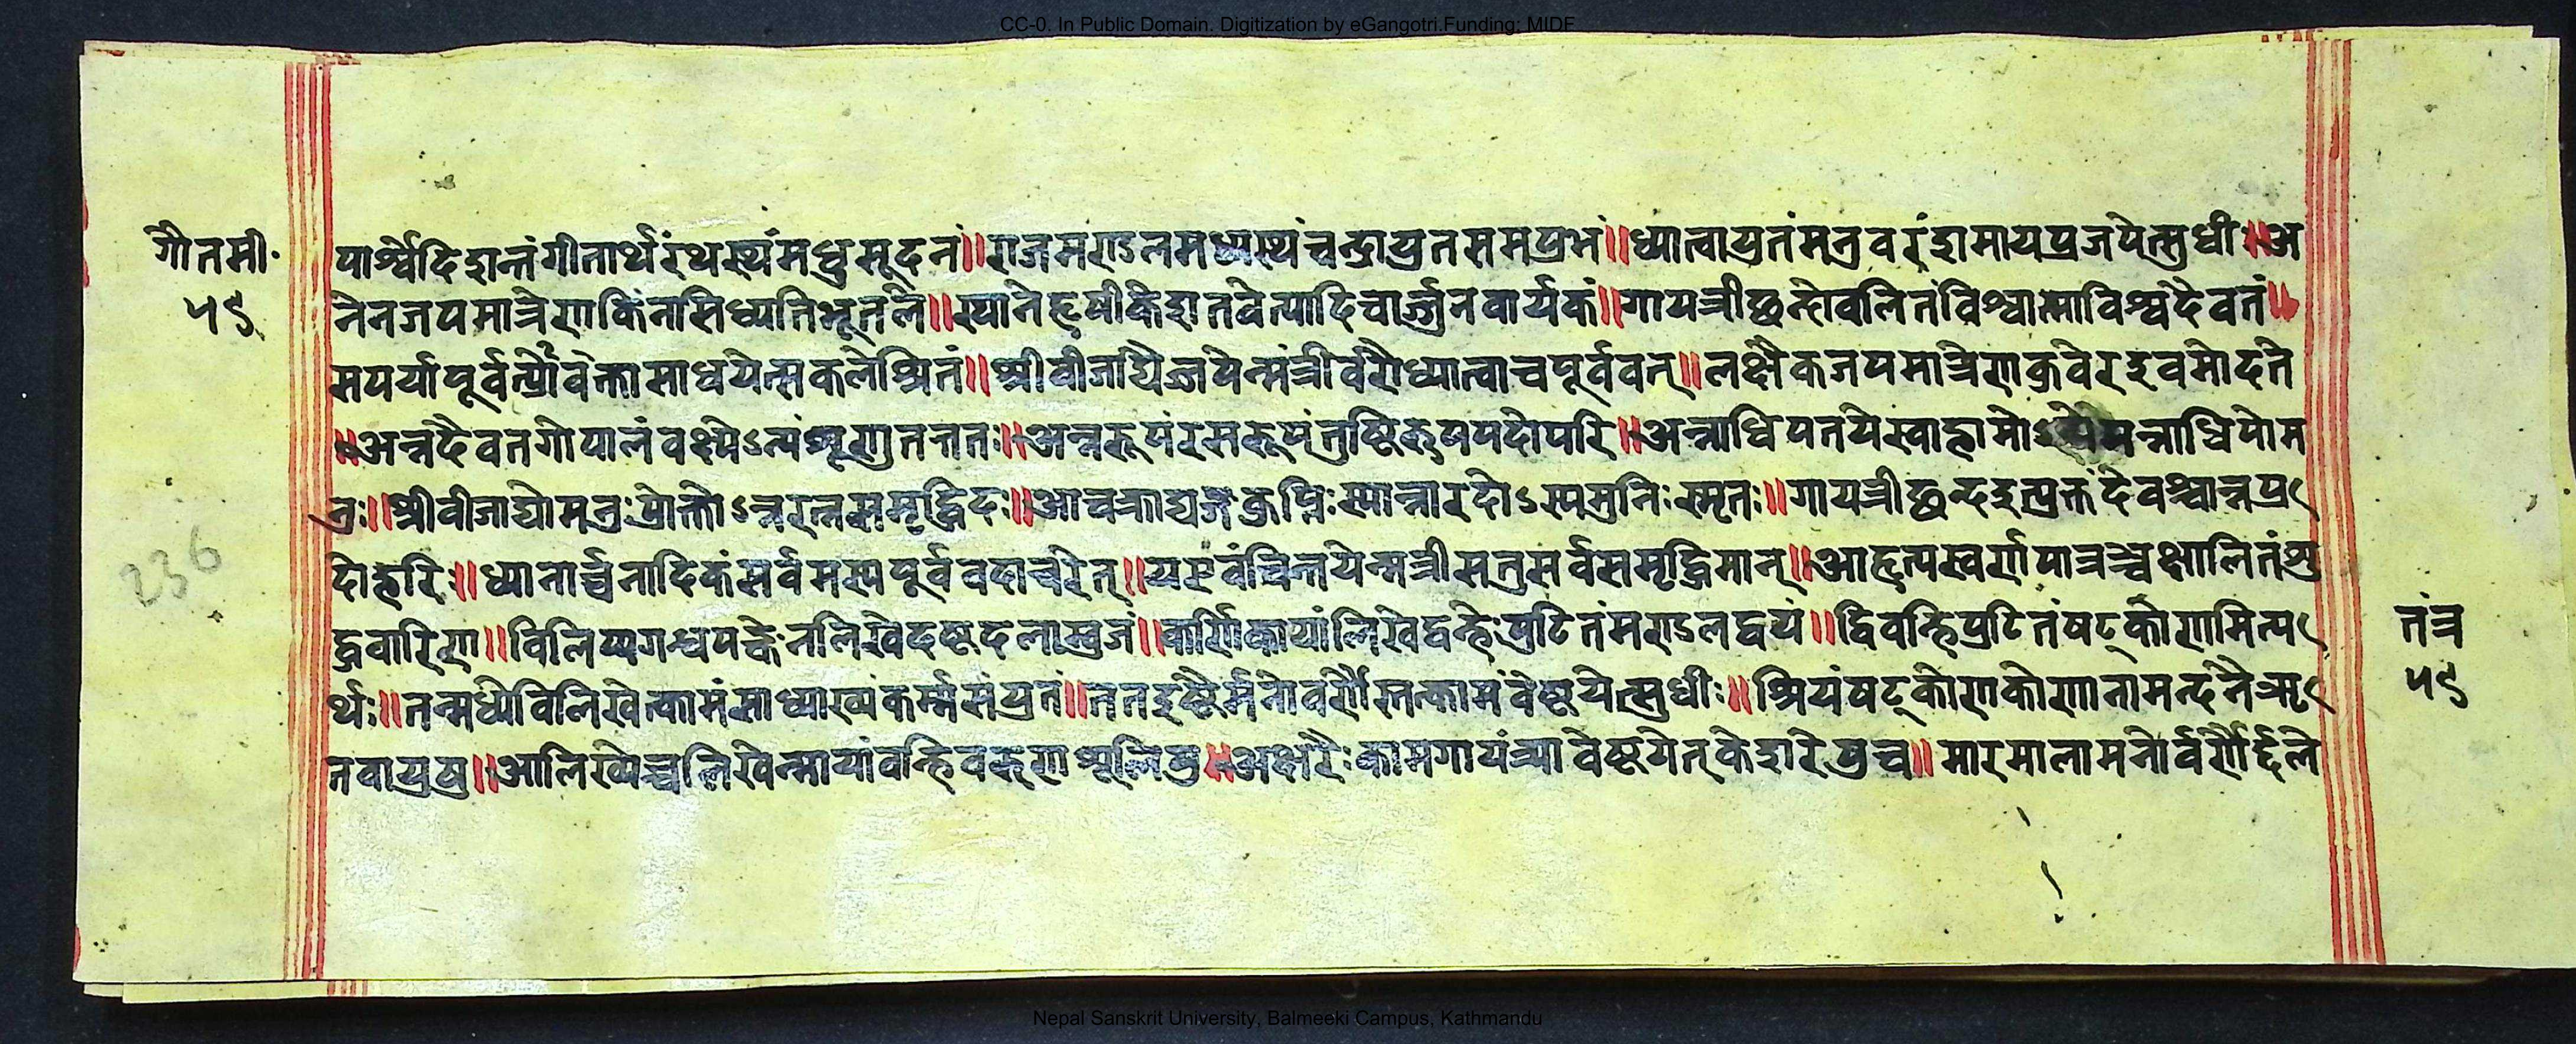 CC-0. In Public Domain. Digitization by eGangotri.Funding: MIDF
गौतमी॰
५९
पार्श्वेदिशन्तंगीतार्थंरथस्थंमधुसूदनं॥राजमण्डलमध्यस्थंचन्द्रायुतसमप्रभं॥ध्यात्वायुतंमनुवरंशमायप्रजपेत्सुधीः॥अ
नेनजपमात्रेणकिंनासिध्यतिभूतले॥स्थानेहृषीकेशतवेत्यादिचार्ज्जुनवार्यकं॥गायत्रीछन्दोवलितंविश्वात्माविश्वदैवतं॥
सपर्यापूर्ववत्प्रोक्तासाधयेत्सकलेश्रितं॥श्रीवीजाद्यैज्जपेन्मंत्रीर्वरौध्यात्वाचपूर्ववत्॥लक्षैकजपमात्रेणकुवेरइवमोदते
॥अन्नदैवतगोपालंवक्ष्येऽन्यंशृणुतत्ततः॥अन्नरूपंरसरूपंतुष्टिरूपपदोपरि॥अन्नाधिपतयेस्वाहामो न्नाधिपोम
नुः॥श्रीवीजाद्योमनुःप्रोक्तोऽन्नरत्नसमृद्धिदः॥आचक्राद्यङ्गकॢप्तिःस्यान्नारदोऽस्यमुनिःस्मृतः॥गायत्रीछन्दइत्युक्तंदेवश्चान्नप्र
दोहरिः॥ध्यानार्च्चनादिकंसर्वमस्यपूर्ववदाचरेत्॥यएवंचिन्तयेन्मन्त्रीसतुसर्वसमृद्धिमान्॥आहृत्यस्वर्णपात्रञ्चक्षालितंशु
द्धवारिणा॥विलिप्यगन्धपङ्केनलिखेदष्टदलाम्बुजं॥कर्णिकायांलिखेद्वन्हेःपुटितंमण्डलद्वयं॥द्विवन्हिपुटितंषट्कोणमित्य
र्थः॥तन्मध्येविलिखेत्कामंसाध्याख्यंकर्म्मसंयुतं॥ततइष्टैर्मनोवर्णैस्तत्कामंवेष्टयेत्सुधीः॥श्रियंषट्कोणकोणानामन्दनैऋ
तवायुषु॥आलिख्येच्चलिखेन्मायांवन्हिवरुणशूलिषु॥अक्षरैःकामगायत्र्यावेष्टयेत्केशरेषुच॥मारमालामनोर्वर्णैर्द्दले
236
तंत्र
५९
Nepal Sanskrit University, Balmeeki Campus, Kathmandu